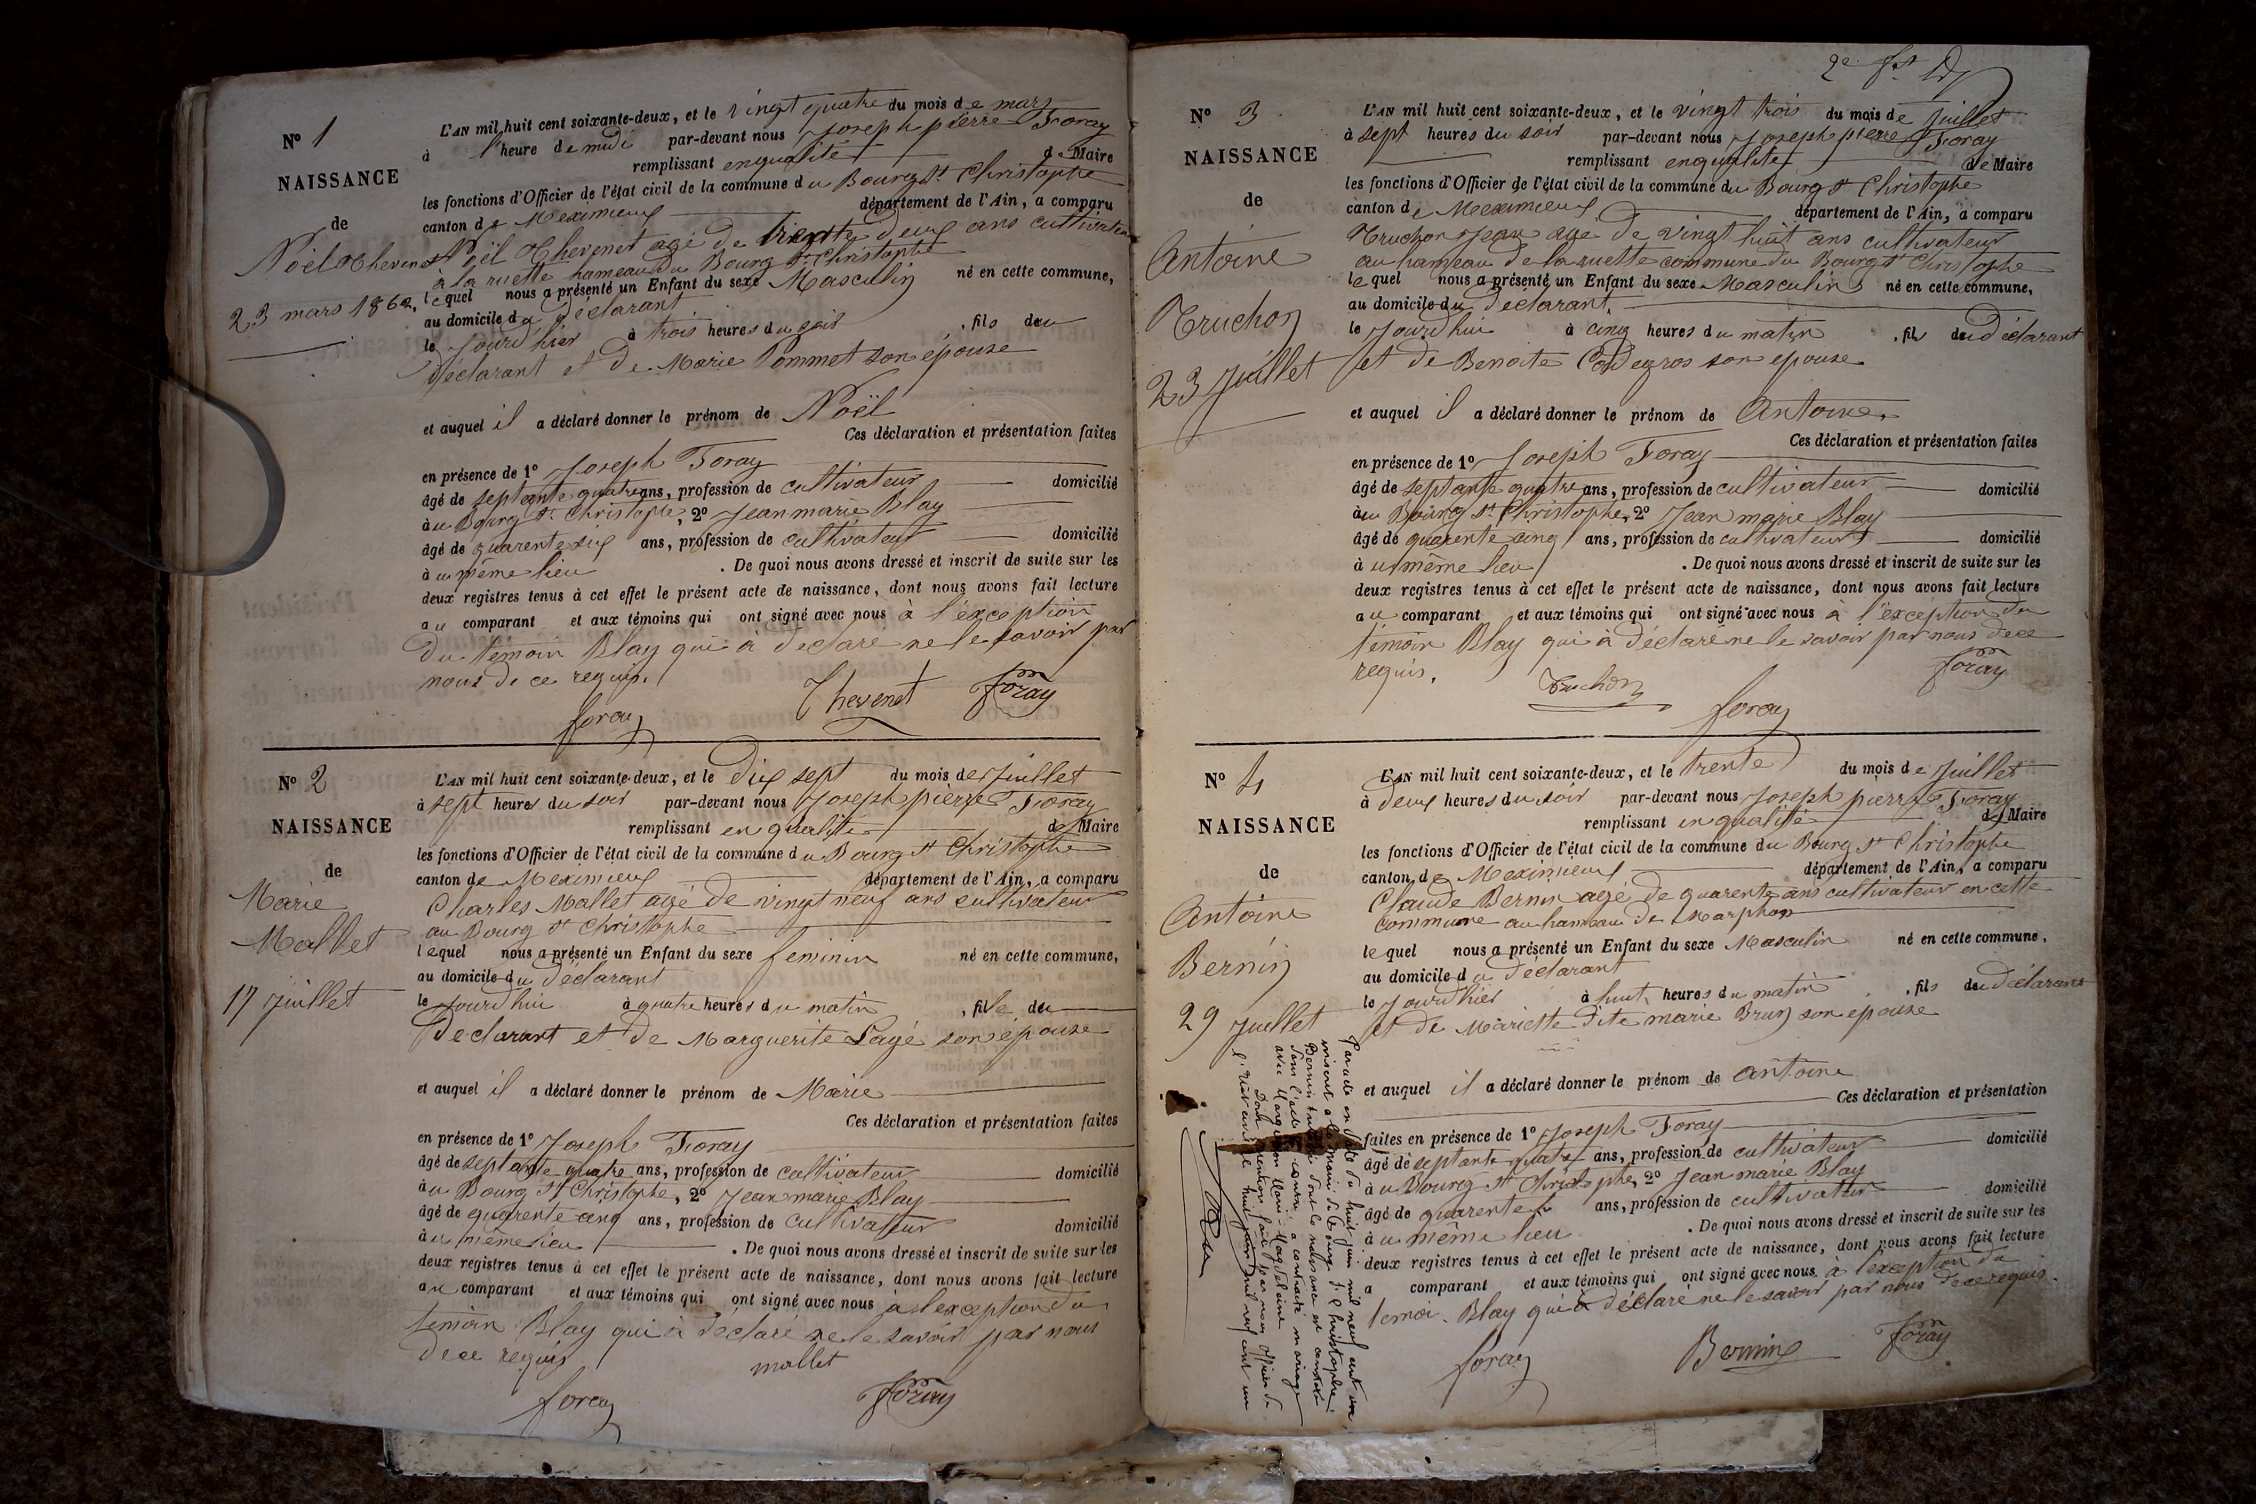 2e fst
No 1
NAISSANCE
de
Noël Thevenet
23 mars 1862.
L'AN mil huit cent soixante-deux, et le vingt quatre du mois de mars
à l'heure de midi par-devant nous Joseph pierre Foray
remplissant en qualité de Maire
les fonctions d'Officier de l'état civil de la commune du Bourg St Christophe
canton de Meximieux département de l'Ain, a comparu
Noël Thevenet agé de trente deux ans cultivateur
à la ruette hameau du Bourg St Christophe
lequel nous a présenté un Enfant du sexe Masculin né en cette commune,
au domicile du déclarant
le jourd'hier à trois heures du soir, fils du
déclarant et de Marie Pommet son épouse
et auquel il a déclaré donner le prénom de Noël
Ces déclaration et présentation faites
en présence de 1o Joseph Foray
âgé de septante quatre ans, profession de cultivateur domicilié
au Bourg St Christophe, 2o Jean marie Blay
âgé de quarente six ans, profession de cultivateur domicilié
au même lieu. De quoi nous avons dressé et inscrit de suite sur les
deux registres tenus à cet effet le présent acte de naissance, dont nous avons fait lecture
au comparant et aux témoins qui ont signé avec nous à l'exception
du témoin Blay qui à déclaré ne le savoir par
nous de ce requis.
Thevenet foray
foray
No 2
NAISSANCE
de
Marie
Mallet
17 Juillet
L'AN mil huit cent soixante-deux, et le dix sept du mois de Juillet
à sept heures du soir par-devant nous Joseph pierre Foray
remplissant en qualité de Maire
les fonctions d'Officier de l'état civil de la commune du Bourg St Christophe
canton de Meximieux département de l'Ain, a comparu
Charles Mallet agé de vingt neuf ans cultivateur
au Bourg St Christophe
lequel nous a présenté un Enfant du sexe feminin né en cette commune,
au domicile du déclarant
le jourd'hui à quatre heures du matin, fille du
déclarant et de Marguerite Pagé son épouse
et auquel il a déclaré donner le prénom de Marie
Ces déclaration et présentation faites
en présence de 1o Joseph Foray
âgé de septante quatre ans, profession de cultivateur domicilié
au Bourg St Christophe, 2o Jean marie Blay
âgé de quarente cinq ans, profession de cultivateur domicilié
au même lieu. De quoi nous avons dressé et inscrit de suite sur les
deux registres tenus à cet effet le présent acte de naissance, dont nous avons fait lecture
au comparant et aux témoins qui ont signé avec nous à l'exception du
témoin Blay qui à déclaré ne le savoir par nous
de ce requis
mallet
foray foray
No 3
NAISSANCE
de
Antoine
Truchon
23 Juillet
L'AN mil huit cent soixante-deux, et le vingt trois du mois de Juillet
à sept heures du soir par-devant nous Joseph pierre Foray
remplissant en qualité de Maire
les fonctions d'Officier de l'état civil de la commune du Bourg St Christophe
canton de Meximieux département de l'Ain, a comparu
Truchon Jean age de vingt huit ans cultivateur
au hameau de la ruette commune du Bourg St Christophe
lequel nous a présenté un Enfant du sexe Masculin né en cette commune,
au domicile du déclarant.
le jourd'hui à cinq heures du matin, fils du déclarant
et de Benoite son épouse
et auquel il a déclaré donner le prénom de Antoine.
Ces déclaration et présentation faites
en présence de 1o Joseph Foray
âgé de septante quatre ans, profession de cultivateur domicilié
au Bourg St Christophe, 2o Jean marie Blay
âgé de quarente cinq ans, profession de cultivateur domicilié
au même lieu. De quoi nous avons dressé et inscrit de suite sur les
deux registres tenus à cet effet le présent acte de naissance, dont nous avons fait lecture
au comparant et aux témoins qui ont signé avec nous à l'exception du
témoin Blay qui à déclaré ne le savoir par nous de ce
requis.
Truchon foray
foray
No 4
NAISSANCE
de
Antoine
Bernin
29 Juillet
L'AN mil huit cent soixante-deux, et le trente du mois de Juillet
à deux heures du soir par-devant nous Joseph pierre Foray
remplissant en qualité de Maire
les fonctions d'Officier de l'état civil de la commune du Bourg St Christophe
canton de Meximieux département de l'Ain, a comparu
Claude Bernin agé de quarente ans cultivateur en cette
commune au hameau de Marphon
lequel nous a présenté un Enfant du sexe Masculin né en cette commune,
au domicile du déclarant
le jourd'hier à huit heures du matin, fils du déclarant
et de Mariette dite marie Brun son épouse
et auquel il a déclaré donner le prénom de antoine
Ces déclaration et présentation
faites en présence de 1o Joseph Foray
âgé de septante quatre ans, profession de cultivateur domicilié
au Bourg St Christophe, 2o Jean marie Blay
âgé de quarente ans, profession de cultivateur domicilié
au même lieu. De quoi nous avons dressé et inscrit de suite sur les
deux registres tenus à cet effet le présent acte de naissance, dont nous avons fait lecture
a comparant et aux témoins qui ont signé avec nous à l'exception du
temoin Blay qui à déclaré ne le savoir par nous de ce requis.
foray Bernin foray
Par acte en date du huit juin mil neuf cent un
inscrit à la mairie de Bourg St Christophe,
Bernin Antoine dont la naissance est constatée
dans l'acte ci-contre, a contracté mariage
avec Marie-Magdeleine
Dont mention faite par nous officier de
l'état civil le huit juin mil neuf cent un